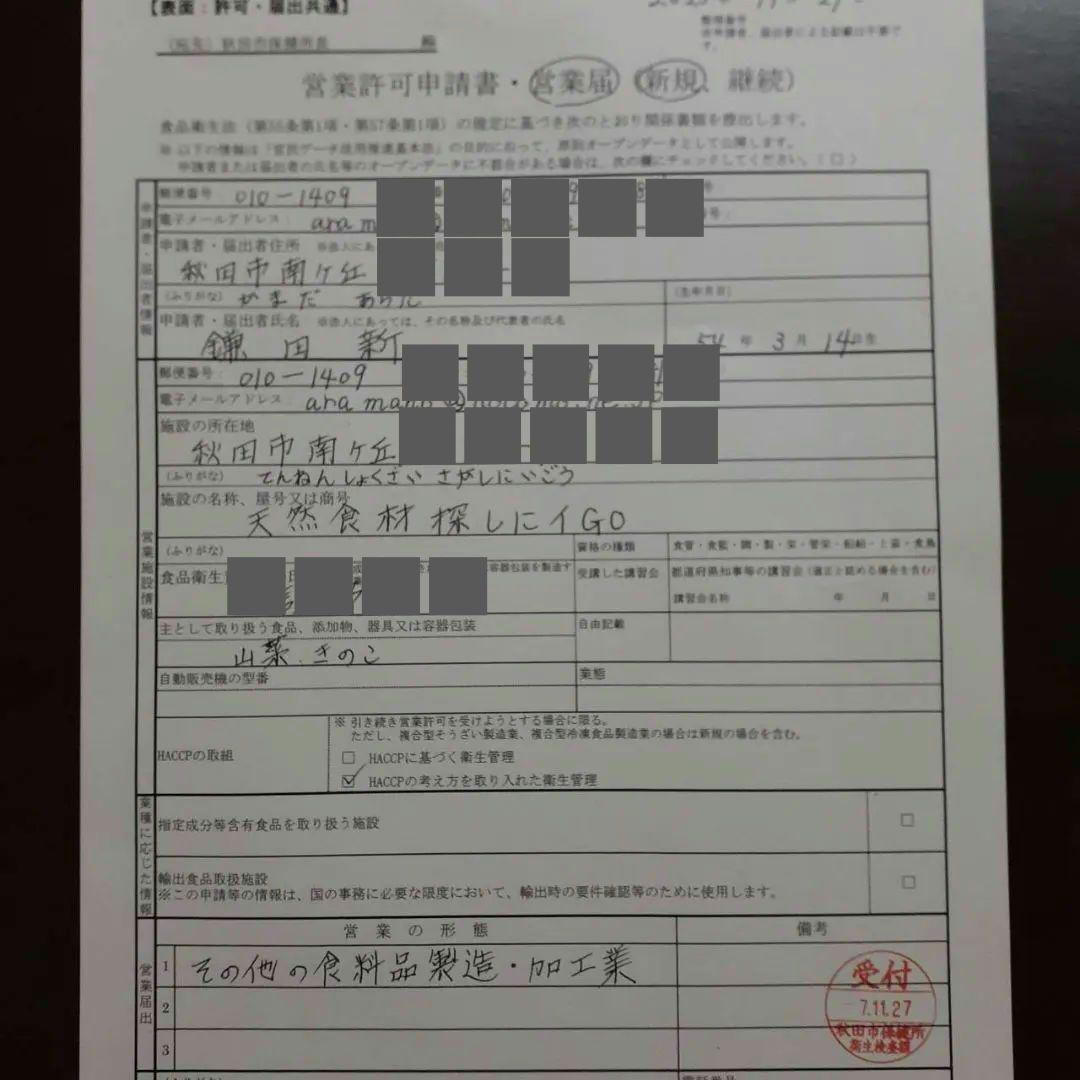 【表面：許可・届出共通】
(宛先) 秋田市保健所長 殿
整理番号
※申請者、届出者による記載は不要です。
営業許可申請書・営業届（新規、継続）
食品衛生法（第55条第1項・第57条第1項）の規定に基づき次のとおり関係書類を提出します。
※ 以下の情報は「官民データ活用推進基本法」の目的に沿って、原則オープンデータとして公開します。
申請者または届出者の氏名等のオープンデータに不都合がある場合は、次の欄にチェックしてください。（□）
申請者・届出者情報
郵便番号： 010-1409
電子メールアドレス： ara
申請者・届出者住所 ※法人にあ
秋田市南ヶ丘
(ふりがな) かまだ あらた
(生年月日)
申請者・届出者氏名 ※法人にあっては、その名称及び代表者の氏名
鎌田 新
54年 3月 14日生
営業施設情報
郵便番号： 010-1409
電子メールアドレス： ara
施設の所在地
秋田市南ヶ丘
(ふりがな) てんねんしょくざい さがしにいごう
施設の名称、屋号又は商号
天然食材 探しにイGO
(ふりがな)
資格の種類 食管・食監・調・製・栄・管栄・船舶・と畜・食鳥
食品衛生
容器包装を製造す
受講した講習会 都道府県知事等の講習会（適正と認める場合を含む）
講習会名称 年 月 日
主として取り扱う食品、添加物、器具又は容器包装
自由記載
山菜、きのこ
自動販売機の型番
業態
HACCPの取組
※ 引き続き営業許可を受けようとする場合に限る。
ただし、複合型そうざい製造業、複合型冷凍食品製造業の場合は新規の場合を含む。
□ HACCPに基づく衛生管理
☑ HACCPの考え方を取り入れた衛生管理
業種に応じた情報
指定成分等含有食品を取り扱う施設 □
輸出食品取扱施設 □
※この申請等の情報は、国の事務に必要な限度において、輸出時の要件確認等のために使用します。
営業届出
営業の形態 備考
1 その他の食料品製造・加工業
2
3
受付
7.11.27
秋田市保健所
衛生検査課